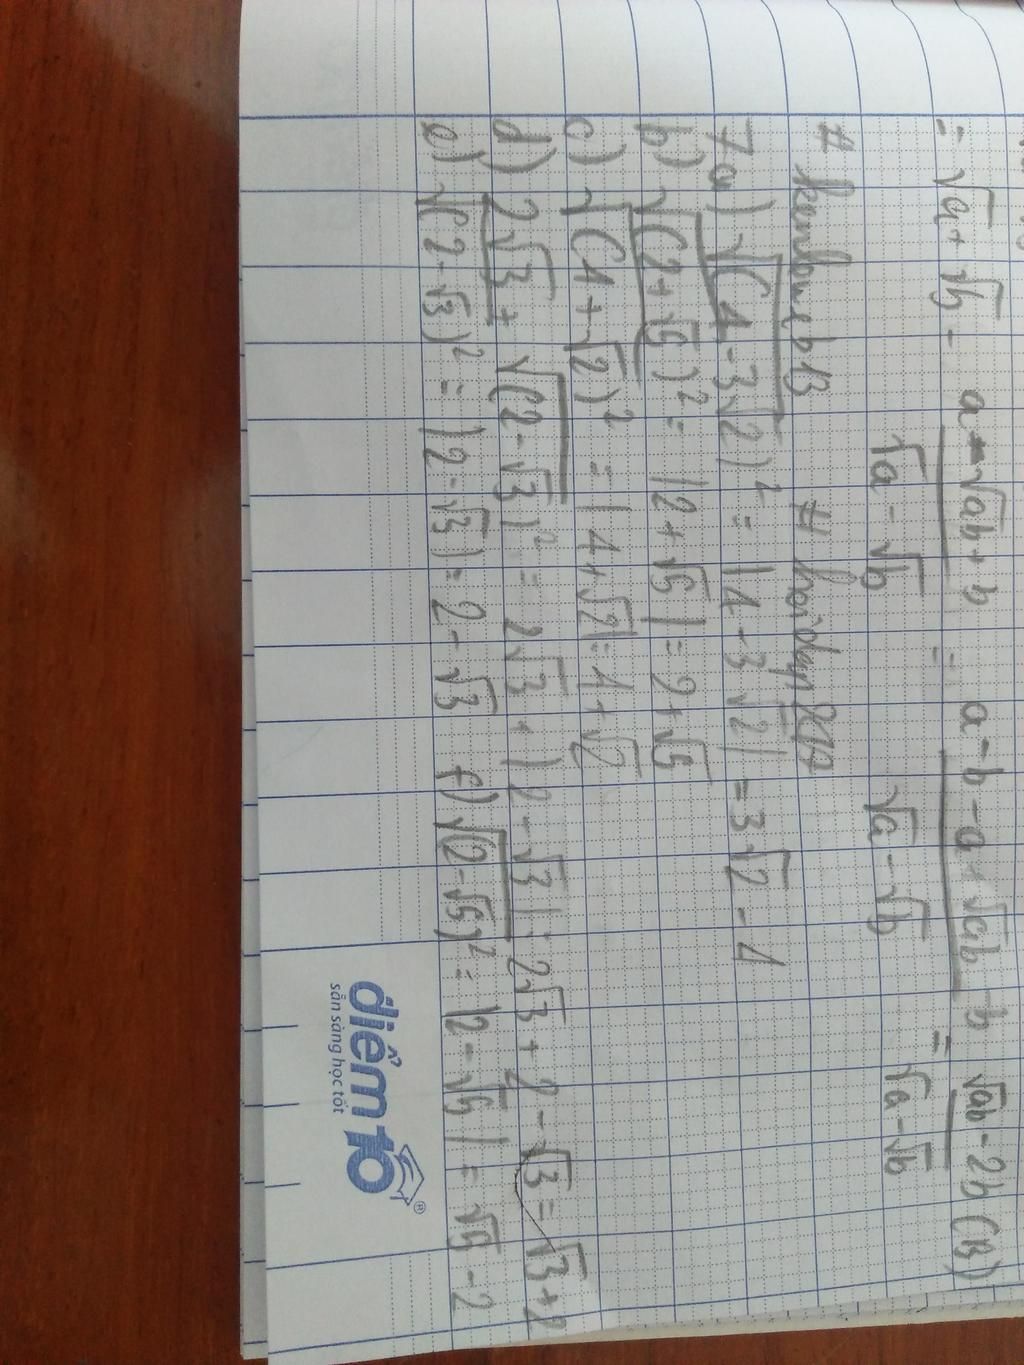 = √a + √b - (a - √ab + b)/(√a - √b) = (a - b - a + √ab - b)/(√a - √b) = (√ab - 2b)/(√a - √b) (B)
7a) √(4 - 3√2)² = |4 - 3√2| = 3√2 - 4
b) √(2 + √5)² = |2 + √5| = 2 + √5
c) √(4 + √2)² = |4 + √2| = 4 + √2
d) 2√3 + √(2 - √3)² = 2√3 + |2 - √3| = 2√3 + 2 - √3 = √3 + 2
e) √(2 - √3)² = |2 - √3| = 2 - √3 f) √(2 - √5)² = |2 - √5| = √5 - 2
điểm 10 ®
sẵn sàng học tốt